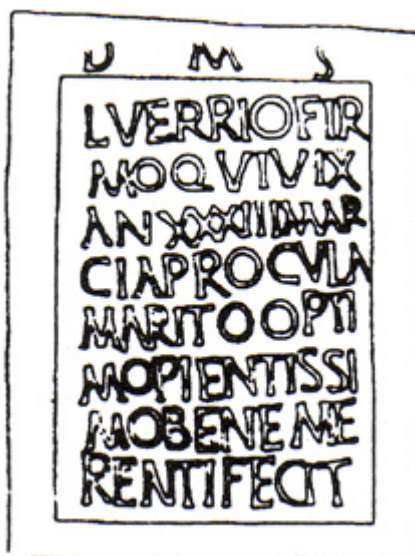 D M S
LVERRIOFIR
MOQVIVIX
AN MAR
CIAPROCVLA
MARITOOPTI
MOPIENTISSI
MOBENEME
RENTIFECIT